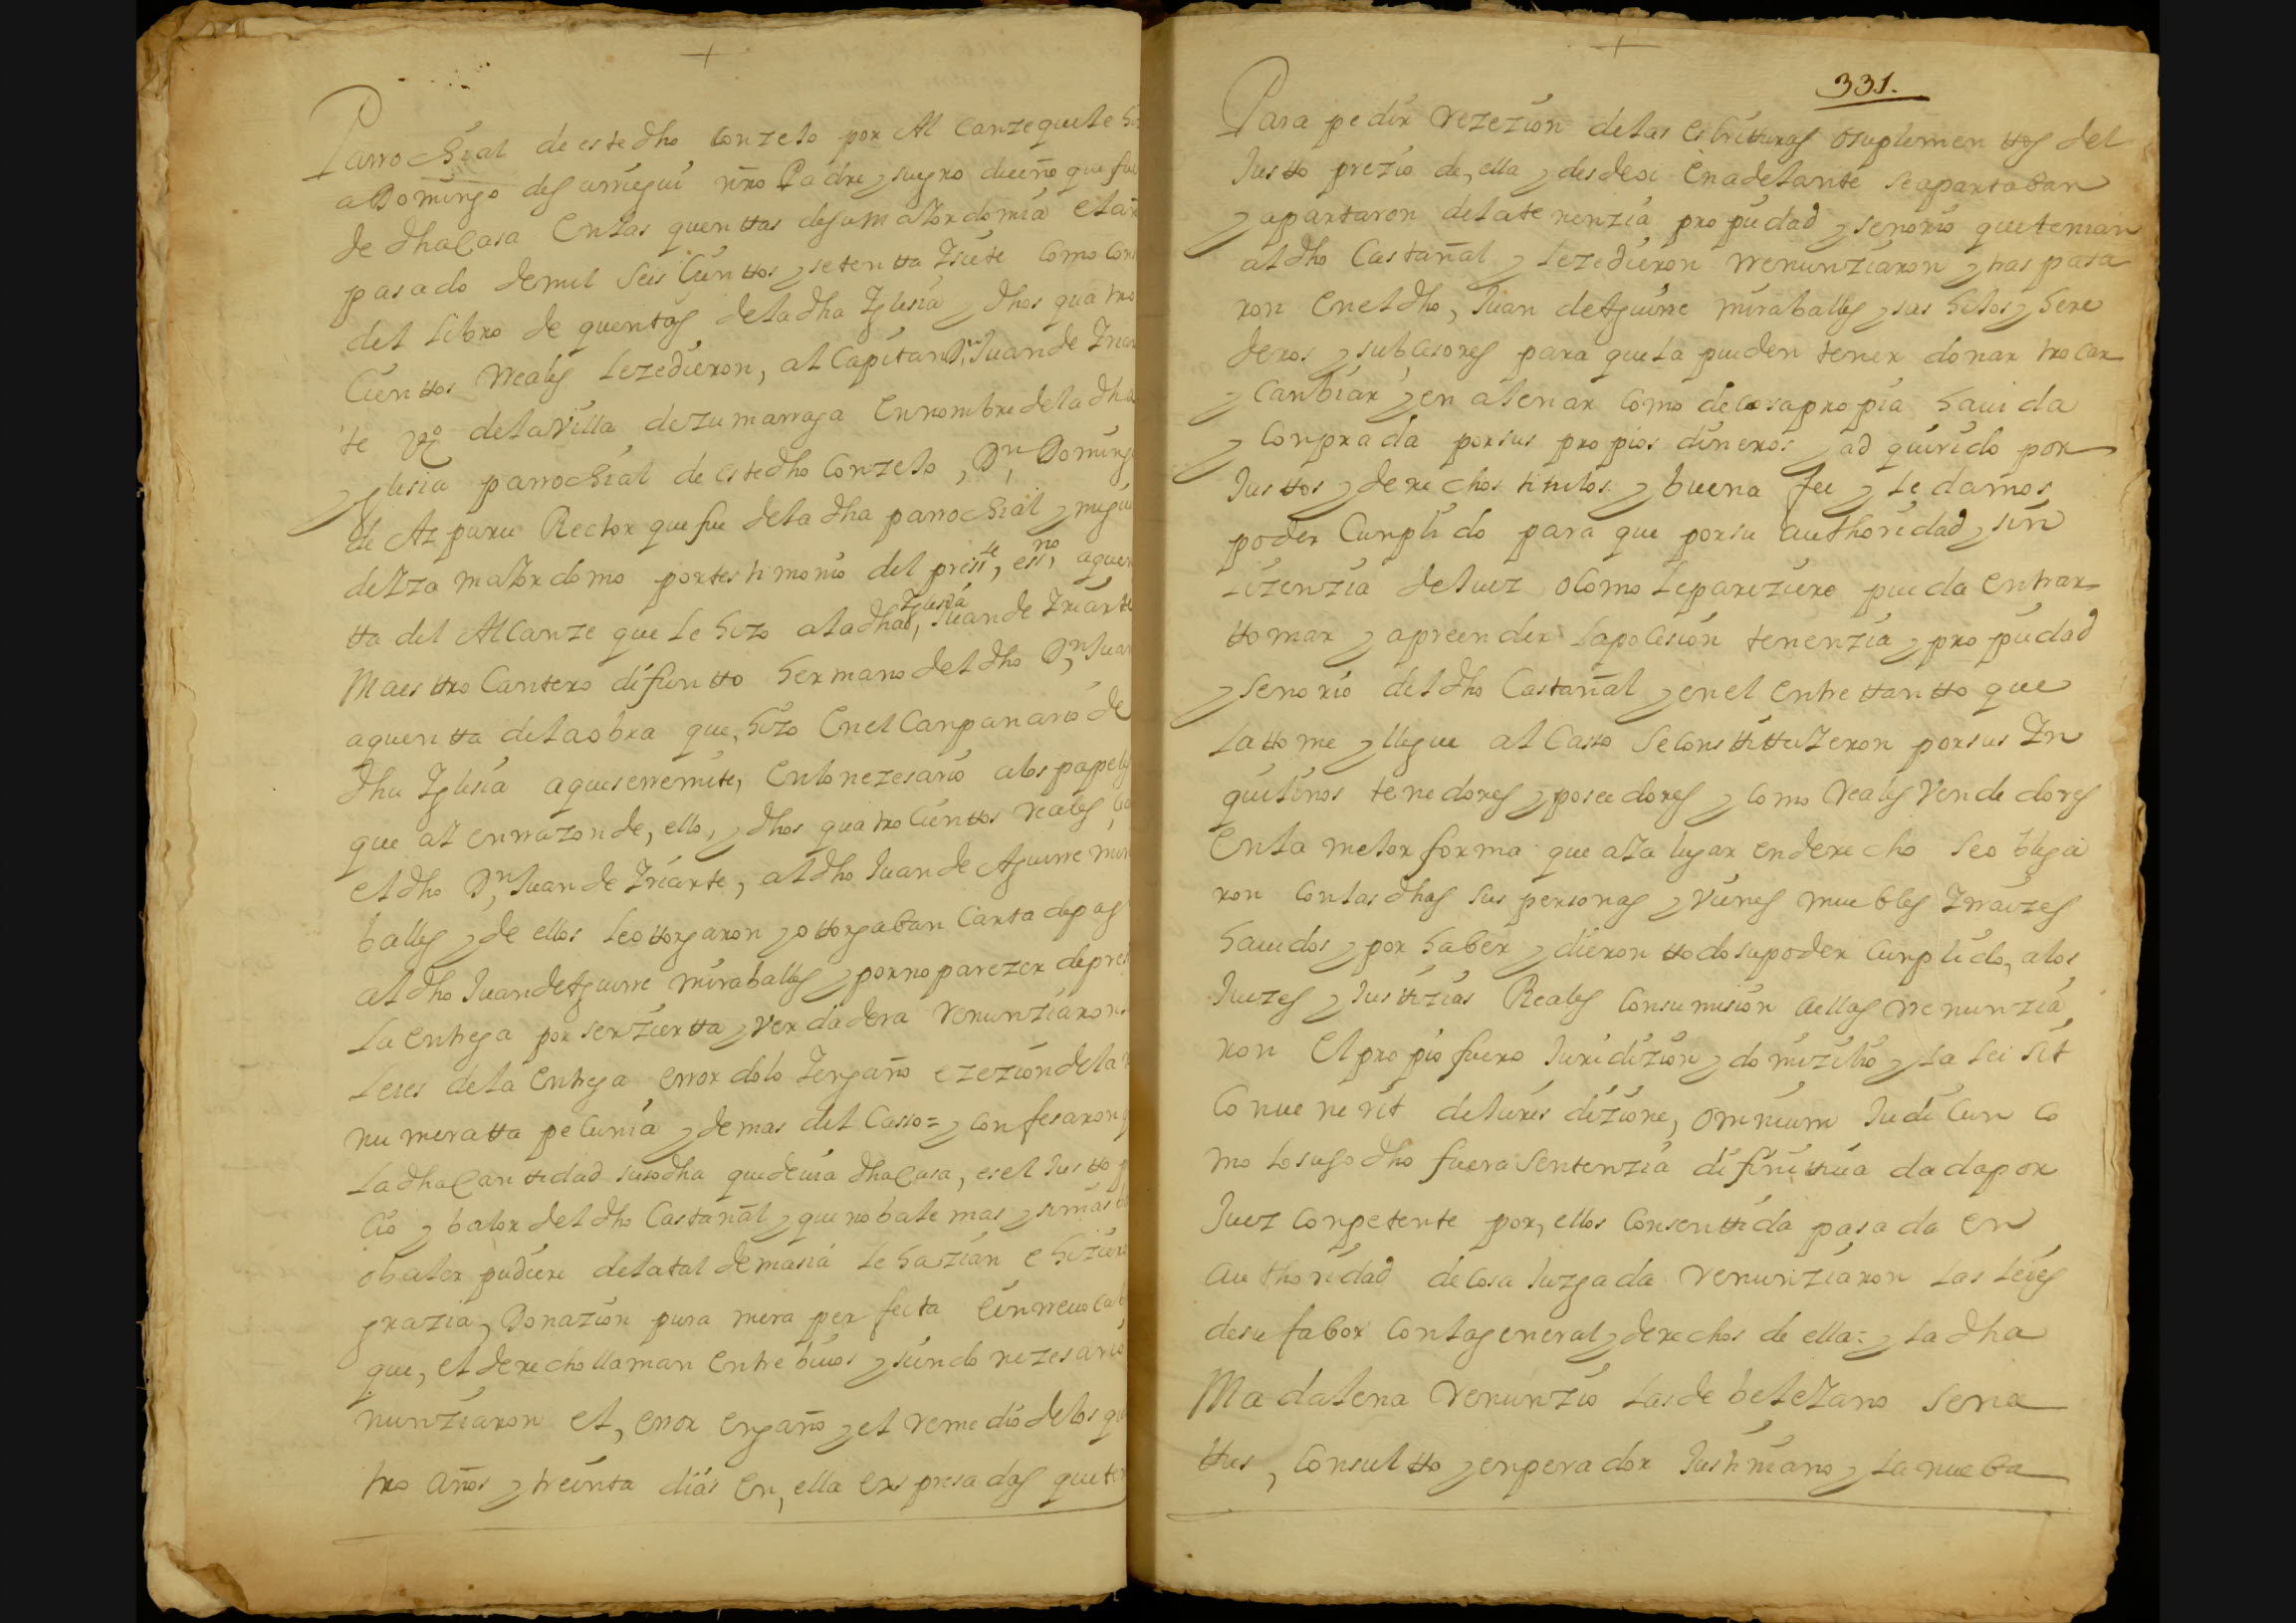 +
Parrochial de este dho Conzejo por Al Canze que le hi
a Domingo de Sarriegui nro Padre y suegro dueño que fue
de dha Casa En las quenttas de su maiordomia el añ
pasado de mil Seis Cienttos y setentta Y siete Como Con
del Libro de quentas de la dha Yglesia y dhos quatro
Cienttos rreales le zedieron, al Capitan Dn Juan de Yriar
te vzº de la Villa de Zumarraga En nombre de la dha
Yglesia parrochial de este dho Conzejo, Dn Doming
de Azpuru Rector que fue de la dha parrochial y migu
de Yza maiordomo por testimonio del presste, essno, a quen
tta del Al Canze que le hizo a la dha Yglesia, Juan de Yriarte
Maesttro Cantero difuntto hermano del dho Dn Juan
a quentta de la obra que, hizo En el Canpanario de
dha Yglesia a que se rremite, En lo nezesario a los papeles
que al en rrazon de, ello, y dhos quatro Cienttos reales,
el dho Dn Juan de Yriarte, al dho Juan de Aguirre mira
balles y de ellos le ottorgaron y ottorgaban Carta de pag
al dho Juan de Aguirre miraballes y por no parezer de pres
La Entrega por ser ziertta y verdadera renunziaron
Leies de la Entrega error dolo Y engaño ezezion de la n
numeratta pecunia y demas del Casso = y confesaron q
La dha Canttidad susodha que devia dha Casa, es el Justto p
cio y balor del dho Castañal y que no bale mas y si mas b
o baler pudiere de la tal demasia le hazian e hiziero
grazia y Donazion pura mera perfecta E inrreuocab
que, el derecho llaman Entre biuos y siendo nezesario
nunziaron el, error engaño y el remedio de los qu
tro años y treinta dias En, ella Expresados que ten
+
331.
Para pedir rezezion de las escritturas o suplementtos del
Justto prezio de, ella y desde oi En adelante se apartaban
y apartaron de la tenenzia propiedad y señorio que tenian
al dho Castañal y le zedieron rrenunziaron y traspasa
ron En el dho, Juan de Aguirre miraballes y sus hijos y here
deros y subcesores para que la pueden tener donar trocar
y Canbiar y enajenar Como de cosa propia hauida
y Conprada por sus propios dineros y adquirido por
Justtos y derechos titulos y buena fee y le damos
poder Cunplido para que por su authoridad y sin
Lizenzia de Juez o Como le pareziere pueda Entrar
ttomar y apreender la posesion tenenzia y propiedad
y señorio del dho Castañal y en el Entrettantto que
la ttome y llegue al Casso se consttittuieron por sus Yn
quilinos tenedores y poseedores y Como reales Vendedores
En la mejor forma que aia lugar en derecho se obliga
ron Con las dhas sus personas y vienes muebles Y rraizes
hauidos y por haber y dieron ttodo su poder Cunplido, a los
Juezes y Justizias Reales Con sumision a ellas rrenunzia
ron El propio fuero Juridizion y domizilio y la lei sit
Conuenerit de Juris dizione, omnium Judicun Co
mo lo susodho fuera Sentenzia difinittiua dada por
Juez Conpetente por, ellos Consenttida pasada En
authoridad de Cosa Juzgada renunziaron las leies
de su fabor Con la general y derechos de ella = y la dha
Madalena renunzio las de beleiano Sena
ttus, Consultto y enperador Justiniano y la nueba